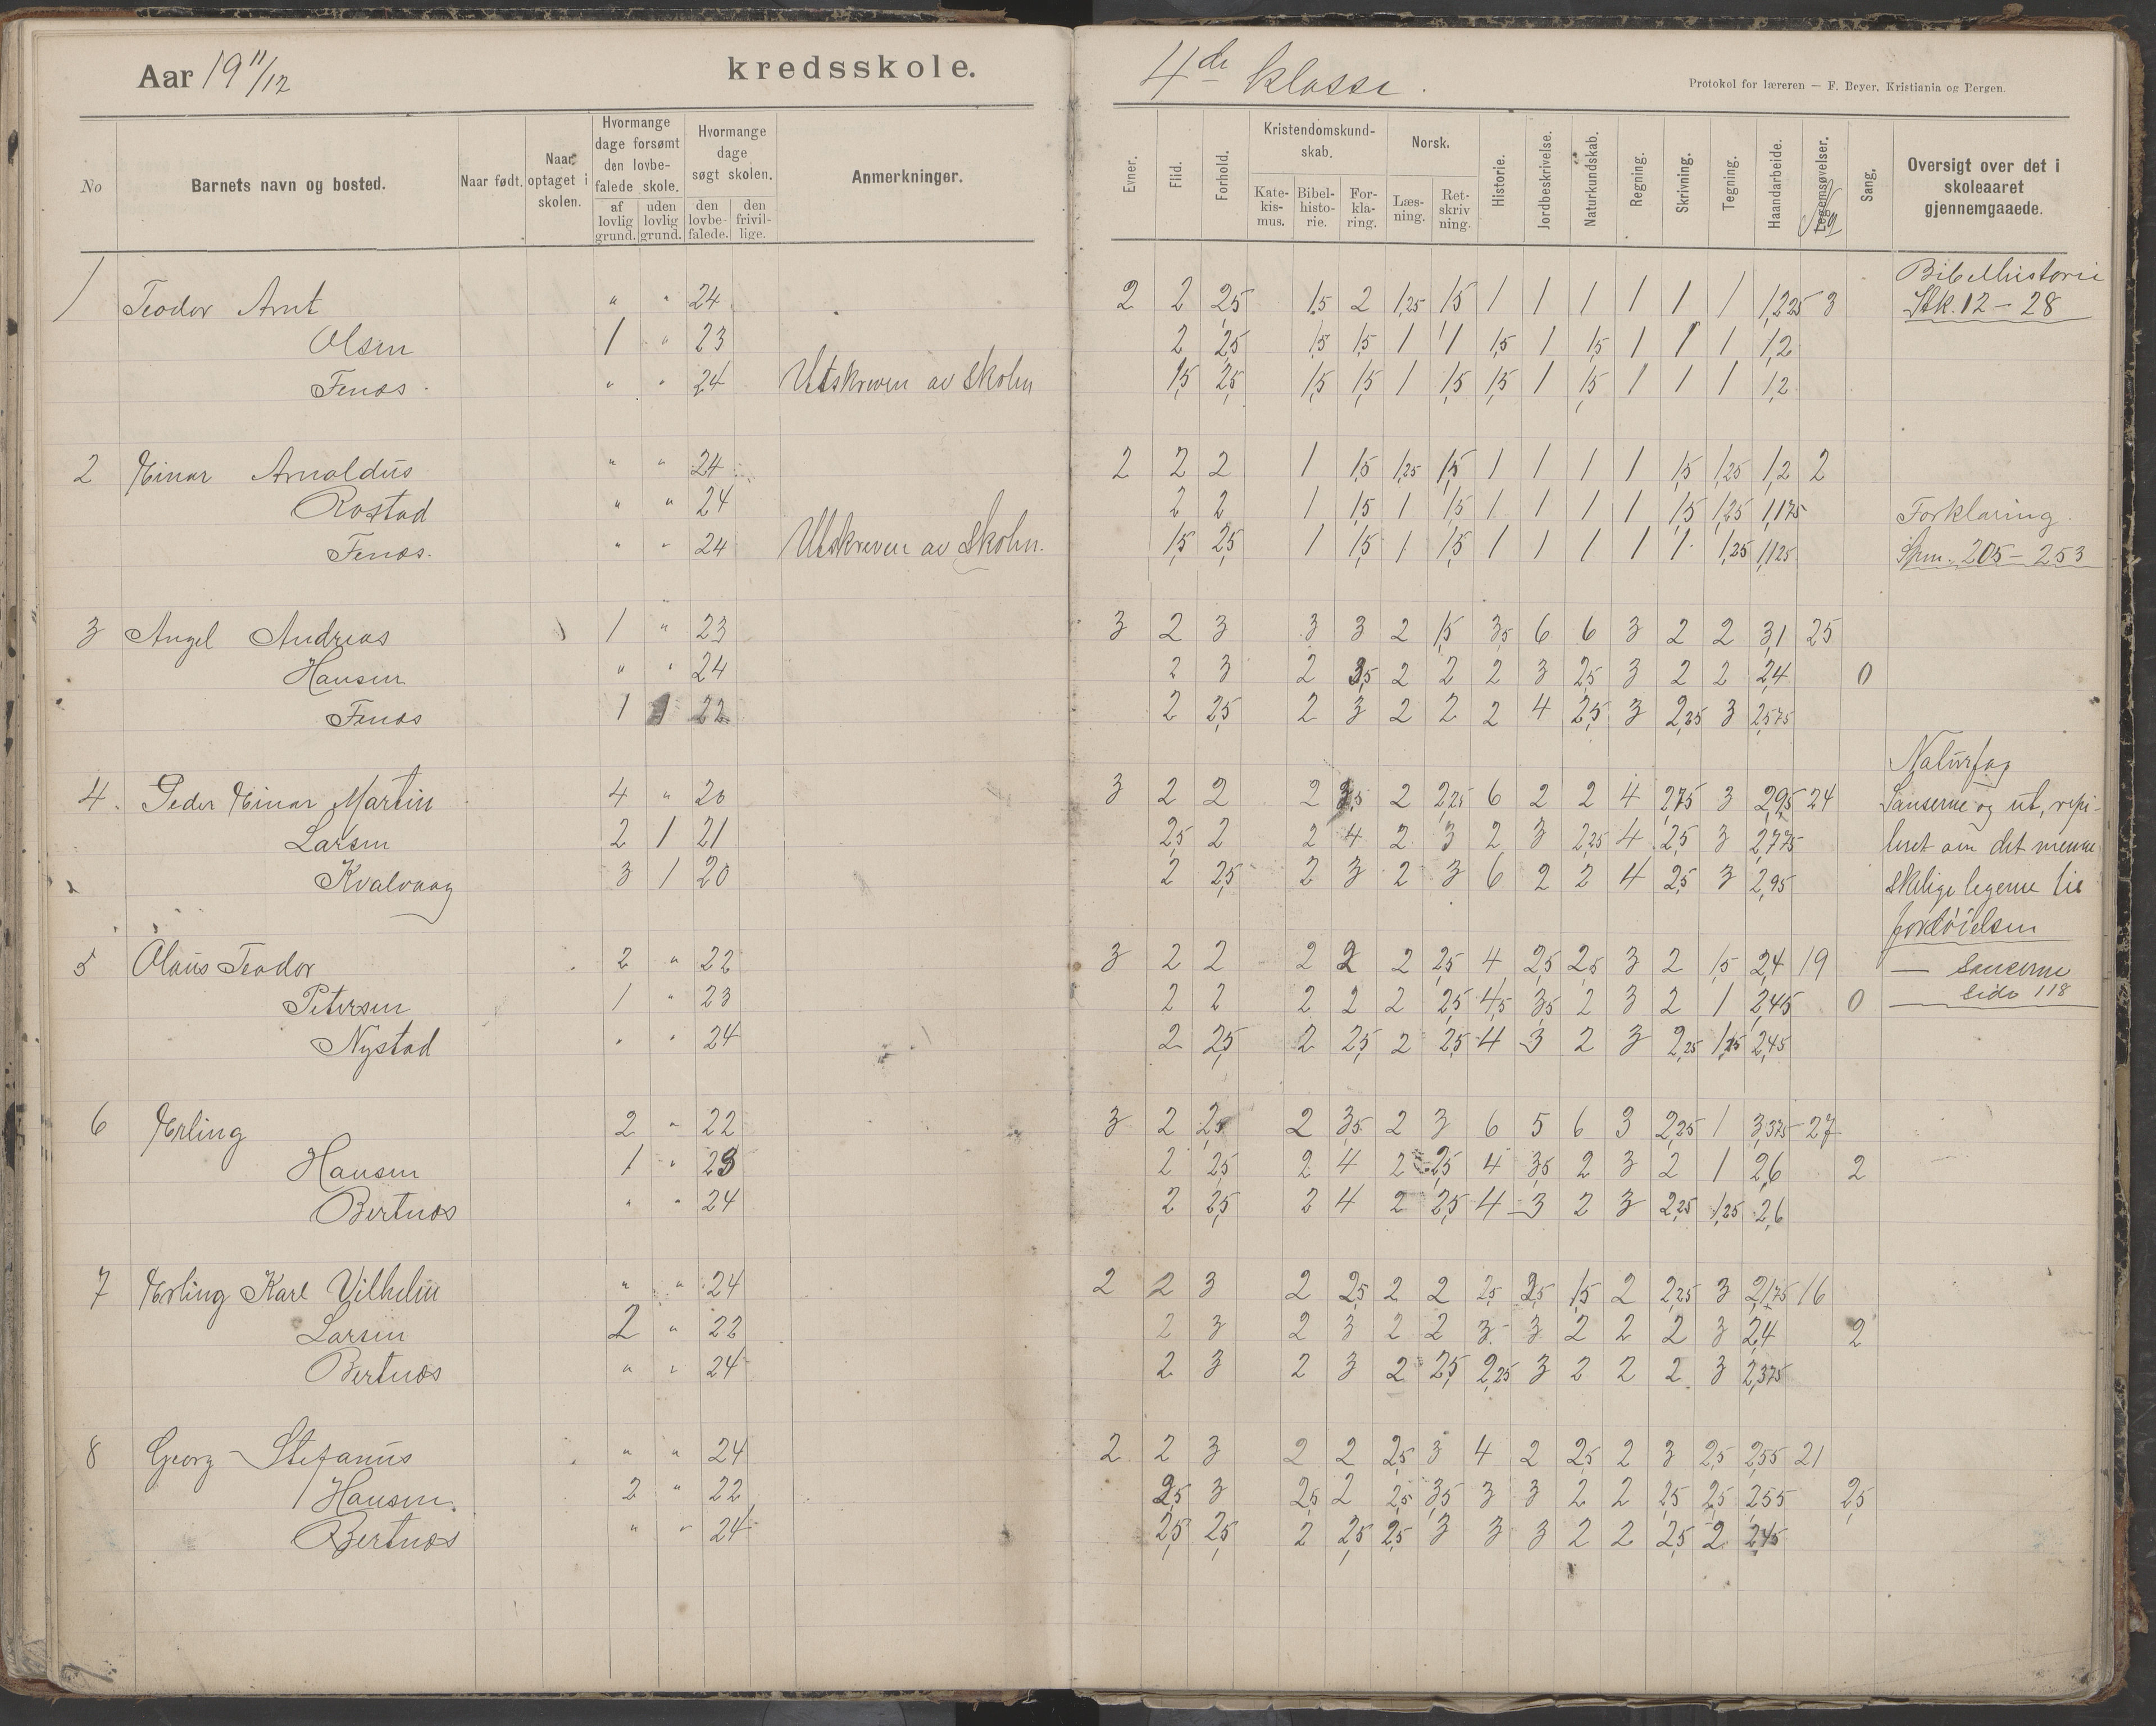 Aar 19 11/12 kredsskole.
4de klasse.
Protokol for læreren — F. Beyer, Kristiania og Bergen.
No
Barnets navn og bosted.
Naar født.
Naar optaget i skolen.
Hvormange dage forsømt den lovbefalede skole.
af lovlig grund.
uden lovlig grund.
Hvormange dage søgt skolen.
den lovbefalede.
den frivillige.
Anmerkninger.
Evner.
Flid.
Forhold.
Kristendomskundskab.
Katekismus.
Bibelhistorie.
Forklaring.
Norsk.
Læsning.
Retskrivning.
Historie.
Jordbeskrivelse.
Naturkundskab.
Regning.
Skrivning.
Tegning.
Haandarbeide.
Legemsøvelser.
Sang.
Oversigt over det i skoleaaret gjennemgaaede.
1 Teodor Arnt " " 24 2 2 2,5 1,5 2 1,25 1,5 1 1 1 1 1 1 1,225 3
Olsen 1 " 23 2 2,5 1,5 1,5 1 1 1,5 1 1,5 1 1 1 1,2
Fenes. " " 24 Utskreven av skolen 1,5 2,5 1,5 1,5 1 1,5 1,5 1 1,5 1 1 1 1,2
Bibelhistorie
Stk. 12 – 28
2 Einar Arnoldus " " 24 2 2 2 1 1,5 1,25 1,5 1 1 1 1 1,5 1,25 1,2 2
Rostad " " 24 2 2 1 1,5 1 1,5 1 1 1 1 1,5 1,25 1,175
Fenes. " " 24 Utskreven av skolen. 1,5 2,5 1 1,5 1 1,5 1 1 1 1 1 1,25 1,125
Forklaring.
Spm. 205 – 253
3 Angel Andreas 1 " 23 3 2 3 3 3 2 1,5 3,5 6 6 3 2 2 3,1 25
Hansen " " 24 2 3 2 3,5 2 2 2 3 2,5 3 2 2 2,4 0
Fenes 1 1 22 2 2,5 2 3 2 2 2 4 2,5 3 2,25 3 2,575
4. Peder Einar Martin 4 " 20 3 2 2 2 3,5 2 2,25 6 2 2 4 2,75 3 2,95 24
Larsen 2 1 21 2,5 2 2 4 2 3 2 3 2,25 4 2,5 3 2,775
Kvalvaag 3 1 20 2 2,5 2 3 2 3 6 2 2 4 2,5 3 2,95
Naturfag
Sanserne og ut, repi-
teret om det menne
skelige legeme til
fordøielsen
— sanserne
side 118
5 Olaus Teodor 2 " 22 3 2 2 2 2 2 2,5 4 2,5 2,5 3 2 1,5 2,4 19
Petersen 1 " 23 2 2 2 2 2 2,5 4,5 3,5 2 3 2 1 2,45 0
Nystad " " 24 2 2,5 2 2,5 2 2,5 4 3 2 3 2,25 1,25 2,45
6 Erling 2 " 22 3 2 2,5 2 3,5 2 3 6 5 6 3 2,25 1 3,375 27
Hansen 1 " 23 2 2,5 2 4 2 2,5 4 3,5 2 3 2 1 2,6 2
Bertnes " " 24 2 2,5 2 4 2 2,5 4 3 2 3 2,25 1,25 2,6
7 Erling Karl Vilhelm " " 24 2 2 3 2 2,5 2 2 2,5 2,5 1,5 2 2,25 3 2,175 16
Larsen 2 " 22 2 3 2 3 2 2 3 3 2 2 2 3 2,4 2
Bertnes " " 24 2 3 2 3 2 2,5 2,25 3 2 2 2 3 2,375
8 Georg Stefanus " " 24 2 2 3 2 2 2,5 3 4 2 2,5 2 3 2,5 2,55 21
Hansen. 2 " 22 2,5 3 2,5 2 2,5 3,5 3 3 2 2 2,5 2,5 2,55 2,5
Bertnes " " 24 2,5 2,5 2 2,5 2,5 3 3 3 2 2 2,5 2 2,45